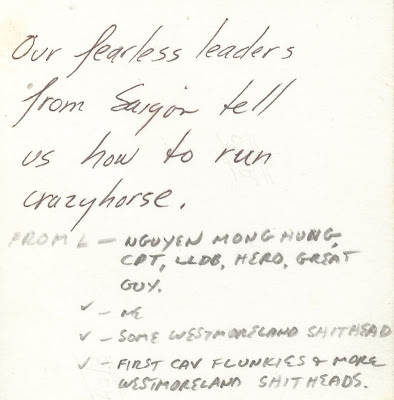 Our fearless leaders
from Saigon tell
us how to run
crazyhorse.
FROM L — NGUYEN MONG HUNG,
CPT, LLDB, HERO, GREAT
GUY.
✓ — ME
✓ — SOME WESTMORELAND SHITHEAD
✓ — FIRST CAV FLUNKIES & MORE
WESTMORELAND SHITHEADS.